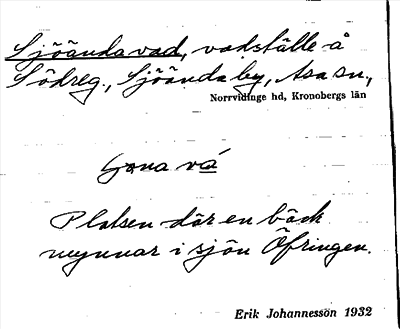 Sjöändavad, vadställe å
Södreg., Sjöända by, Asa sn.,
Norrvidinge hd, Kronobergs län
vá
Platsen där en bäck
mynnar i sjön Öfringen.
Erik Johannesson 1932